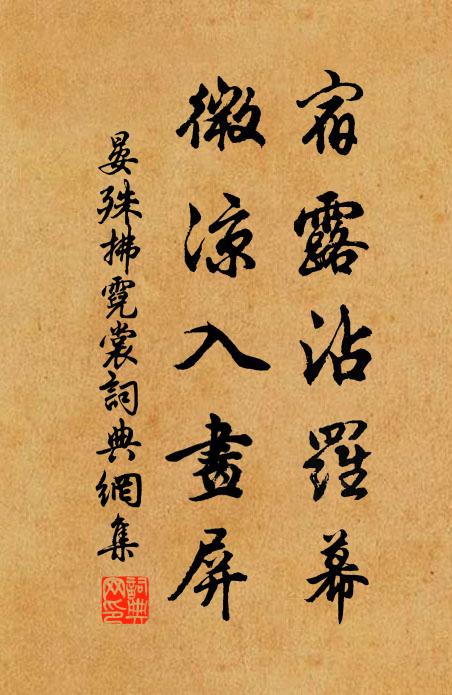 宿露沾羅幕
微涼入畫屏
晏殊拂霓裳詞典網集
詞典網印